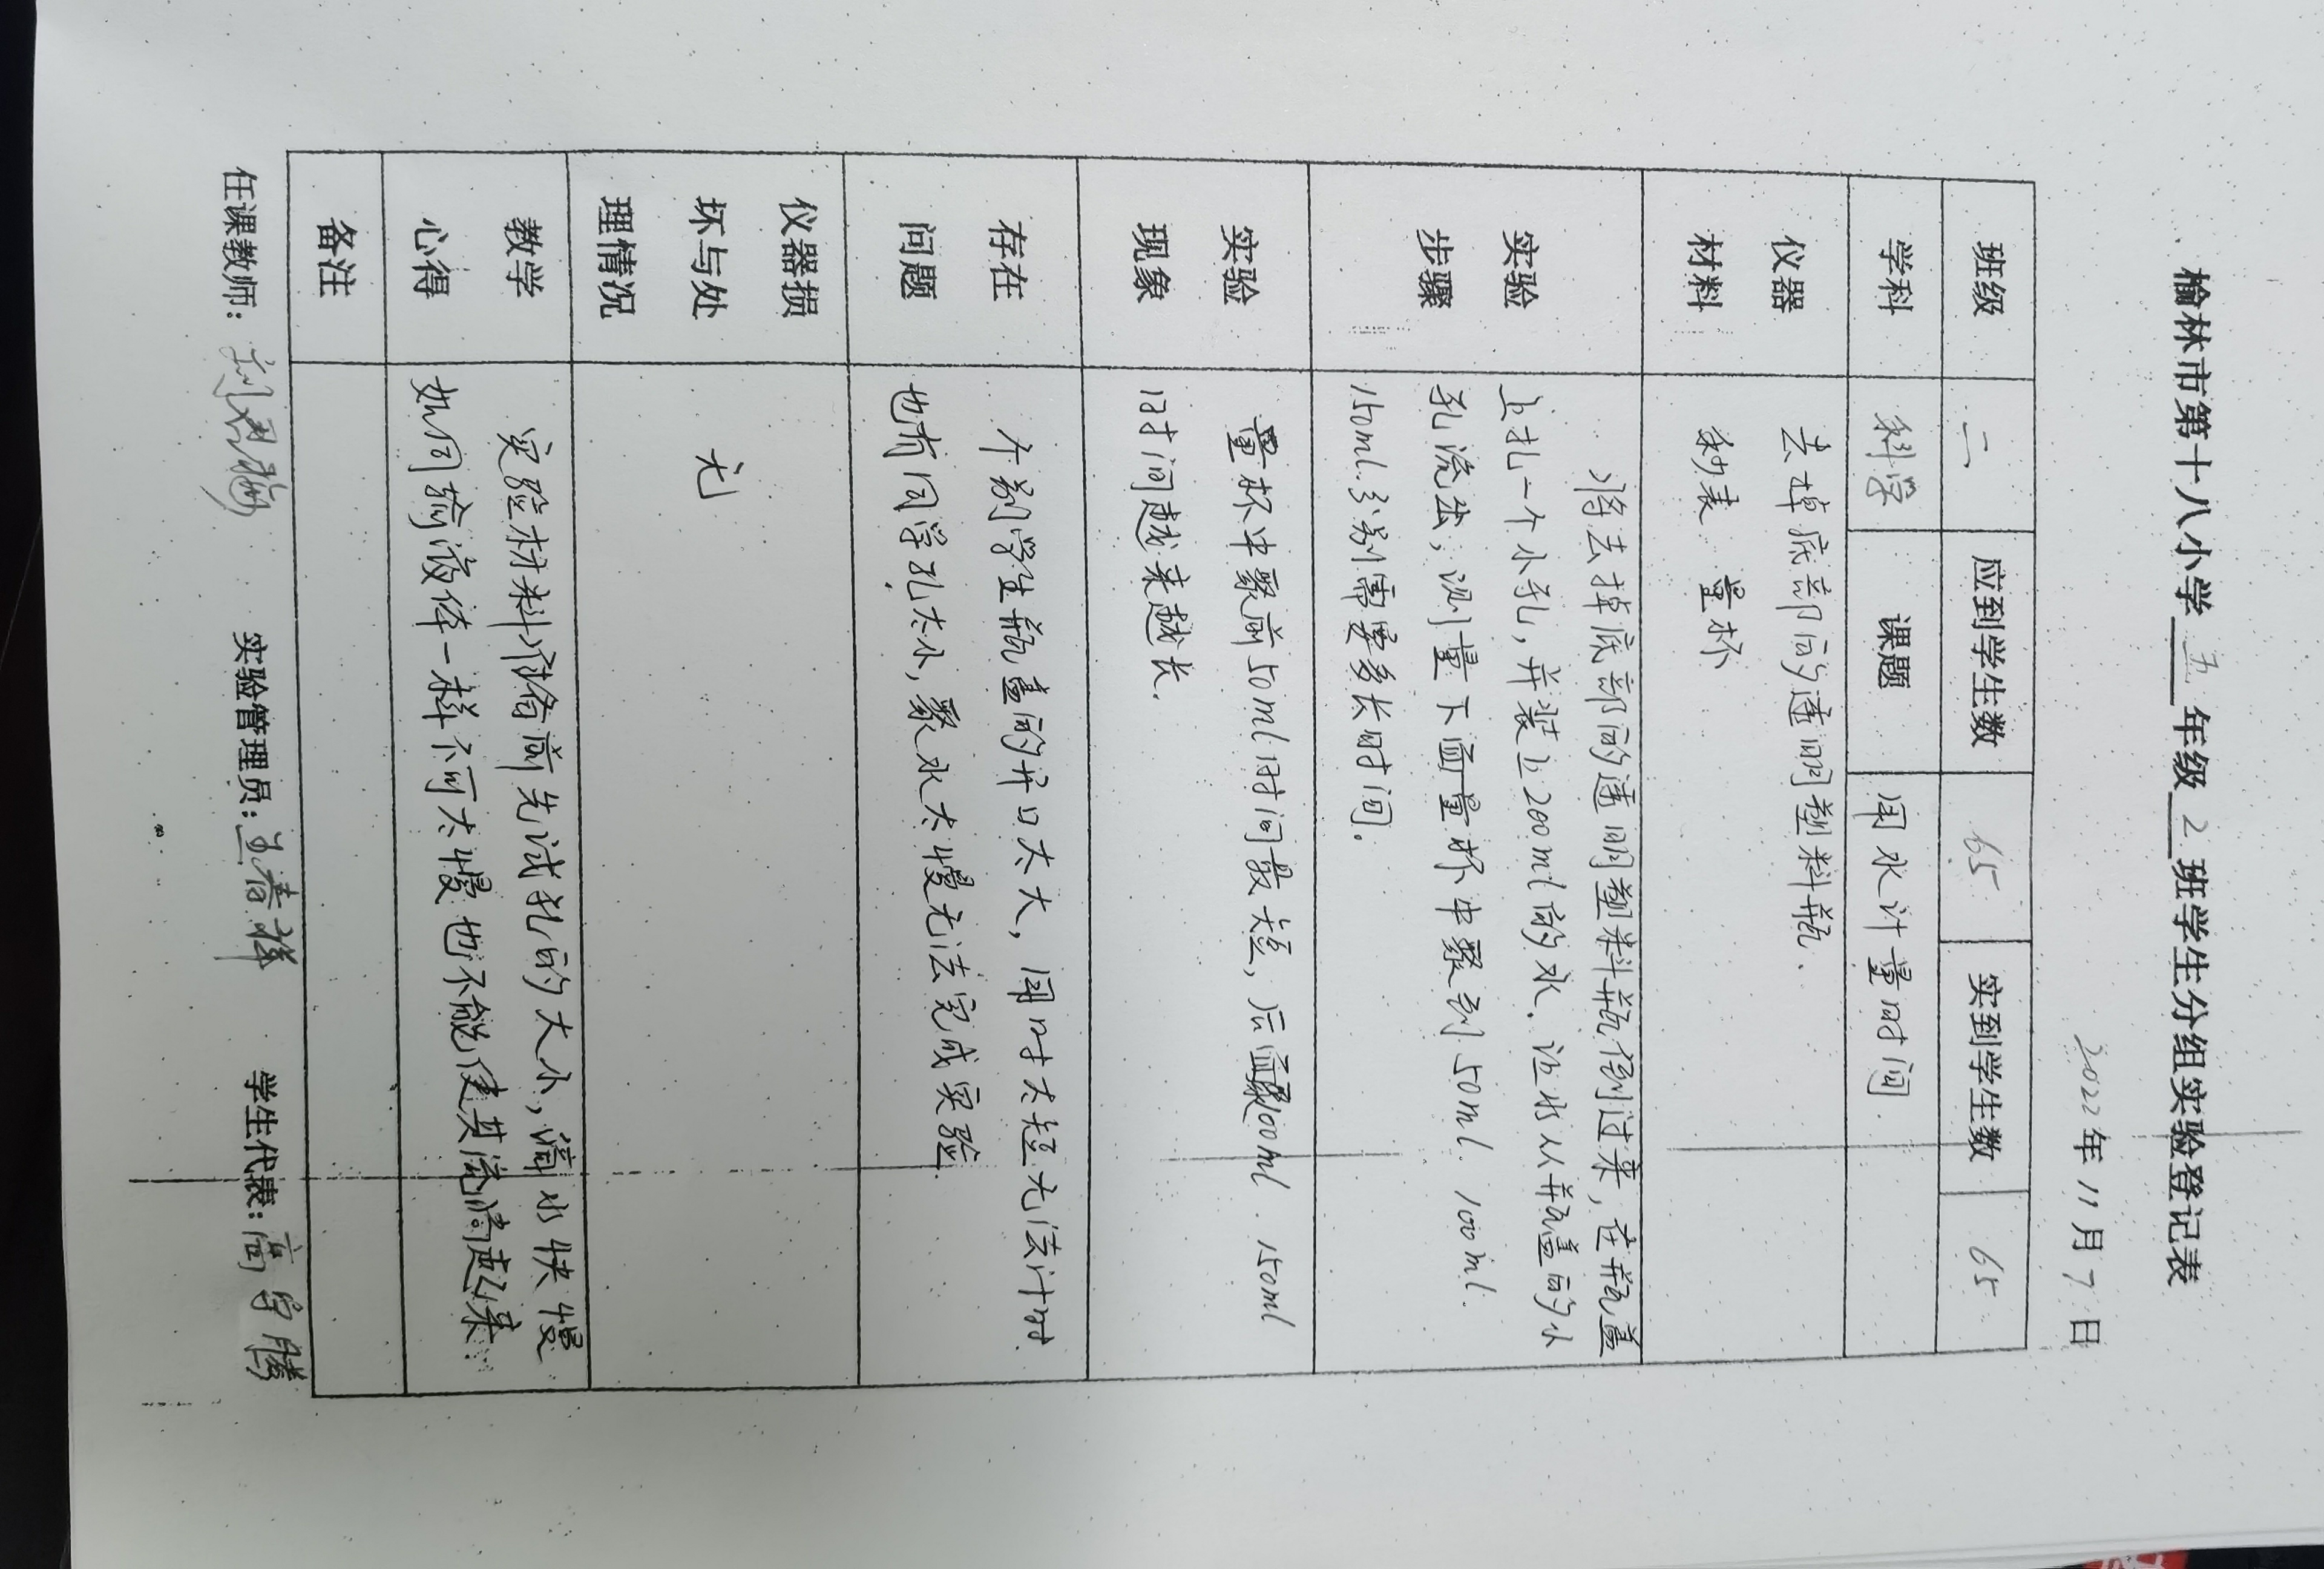 榆林市第十八小学 五 年级 2 班学生分组实验登记表
2022年11月7日
班级 二 应到学生数 65 实到学生数 65
学科 科学 课题 用水计量时间.
仪器
材料
去掉底部的透明塑料瓶.
秒表 量杯
实验
步骤
将去掉底部的透明塑料瓶倒过来,在瓶盖
上扎一个小孔,并装上200ml的水.让水从瓶盖的小
孔流出,测量下面量杯中聚到50ml. 100ml.
150ml.分别需要多长时间.
实验
现象
量杯中聚前50ml时间最短,后面聚100ml. 150ml
时间越来越长.
存在
问题
个别学生瓶盖的开口太大,用时太短无法计时.
也有同学孔太小,聚水太慢无法完成实验.
仪器损
坏与处
理情况
无
教学
心得
实验材料准备前先试孔的大小,滴水快慢
如同输液体一样不可太慢也不能使其流淌起来.
备注
任课教师: 实验管理员: 王春祥 学生代表: 高宇腾